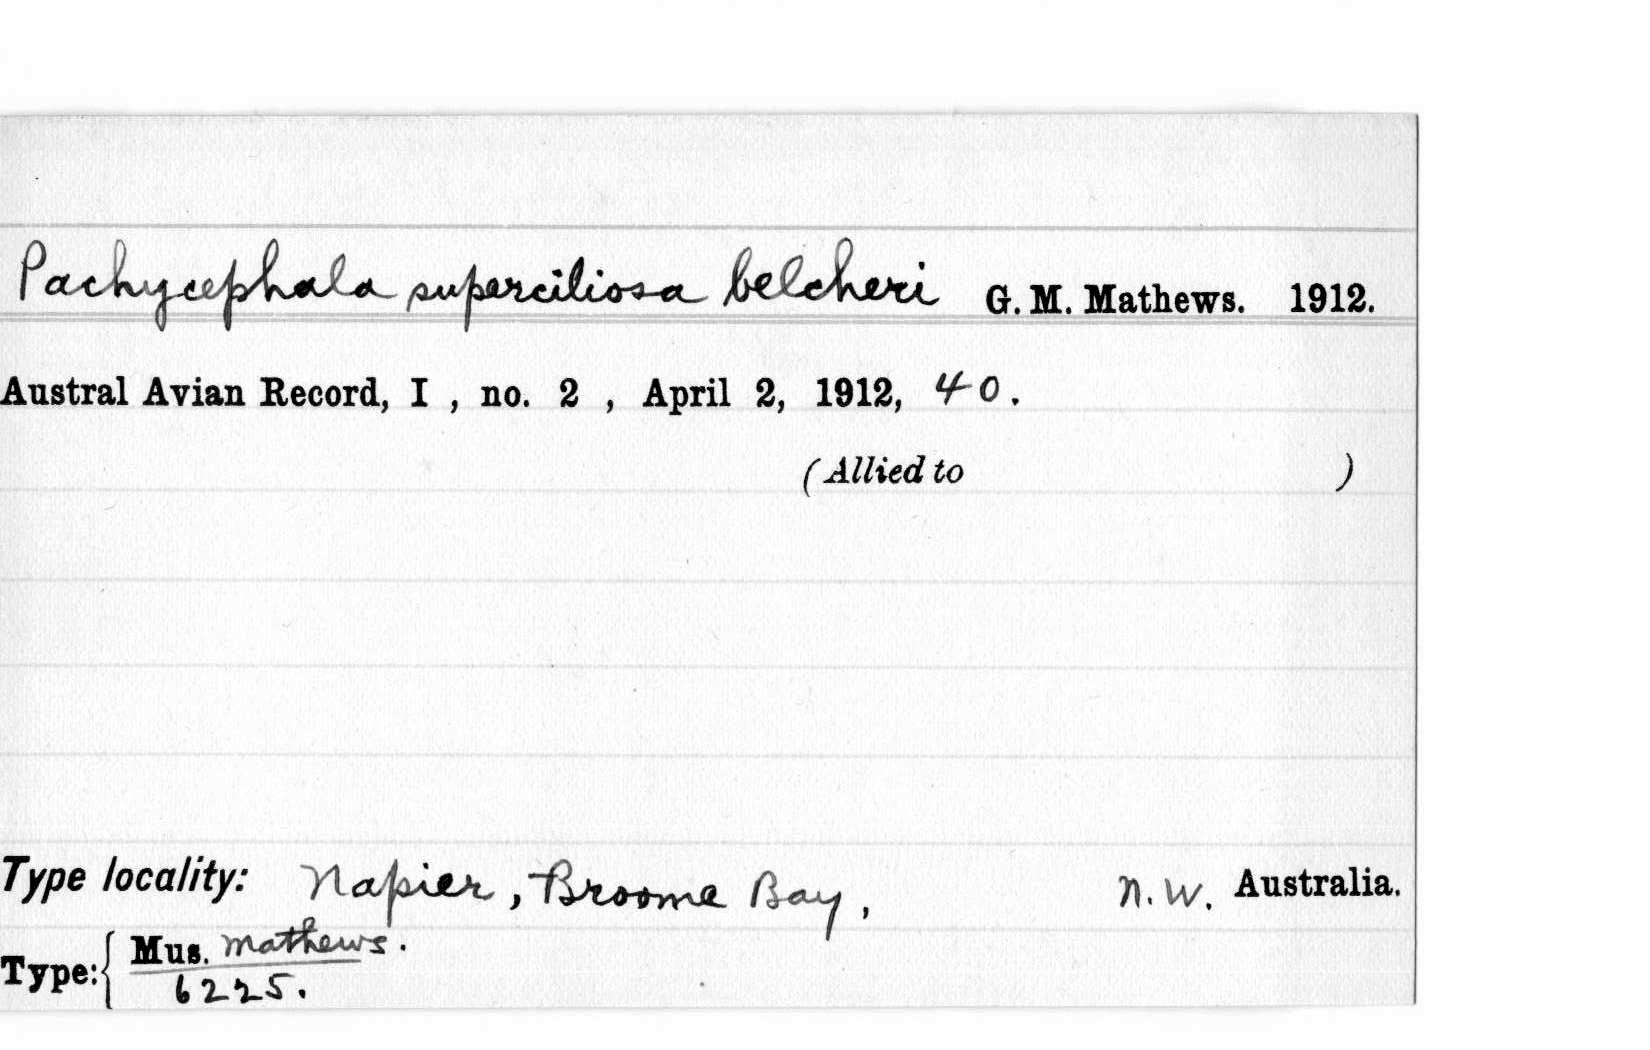 Pachycephala superciliosa belcheri G. M. Mathews. 1912.
Austral Avian Record, I , no. 2 , April 2, 1912, 40.
(Allied to )
Type locality: Napier, Broome Bay, N. W. Australia.
Type: { Mus. Mathews.
6225.